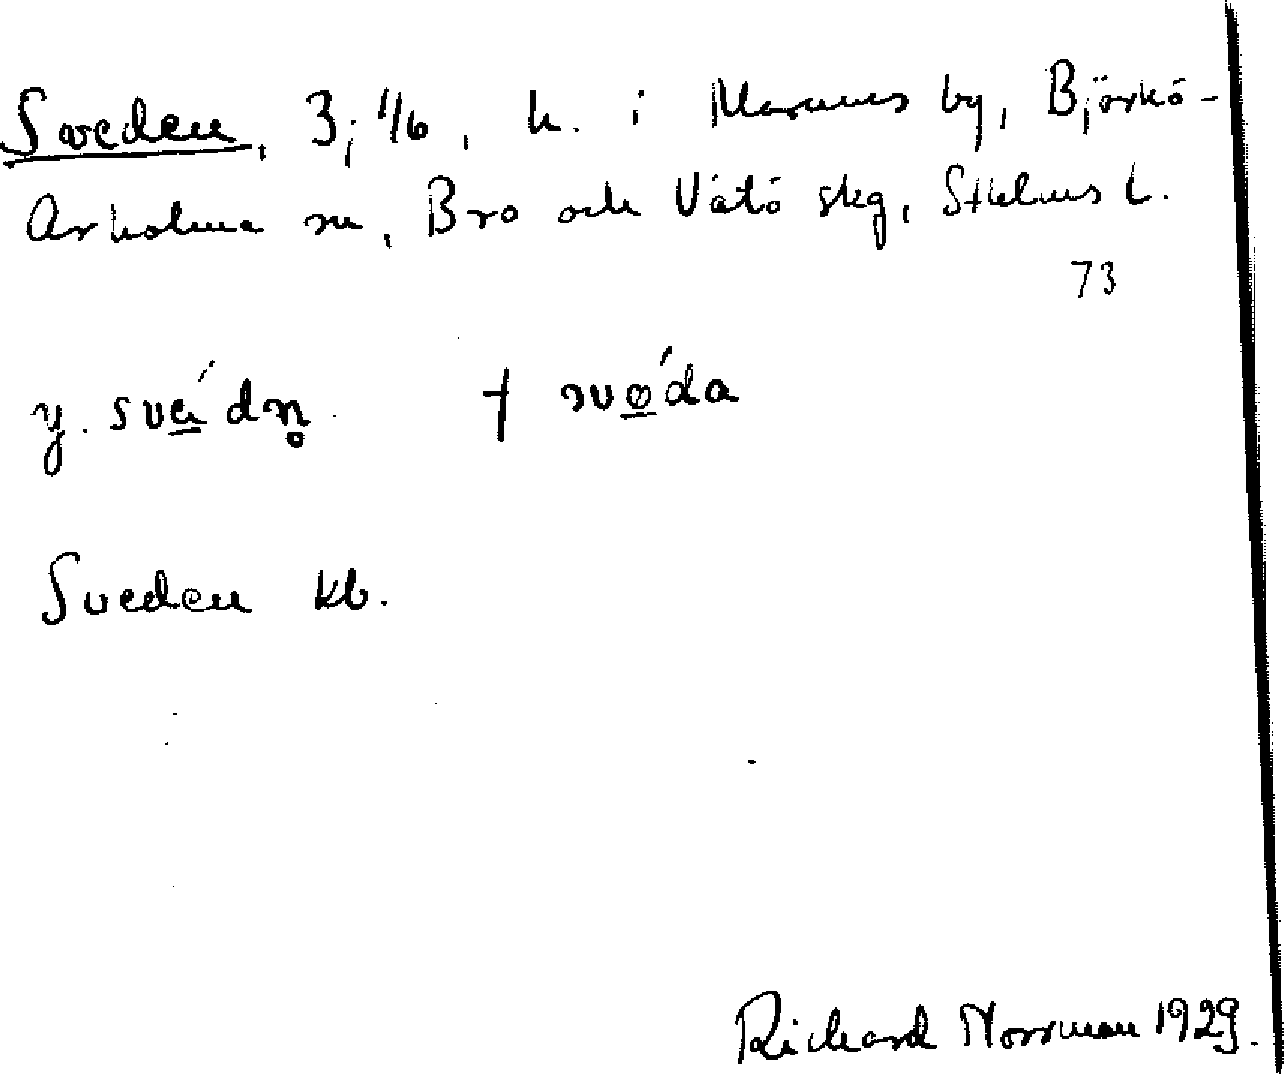 Sweden, 3; 1/6, h. i Marums by, Björkö-
Arholma sn, Bro och Vätö skg, Sthlms l.
73
y. své́dn̥ † svǿda
Sveden kb.
Richard Norrman 1929.